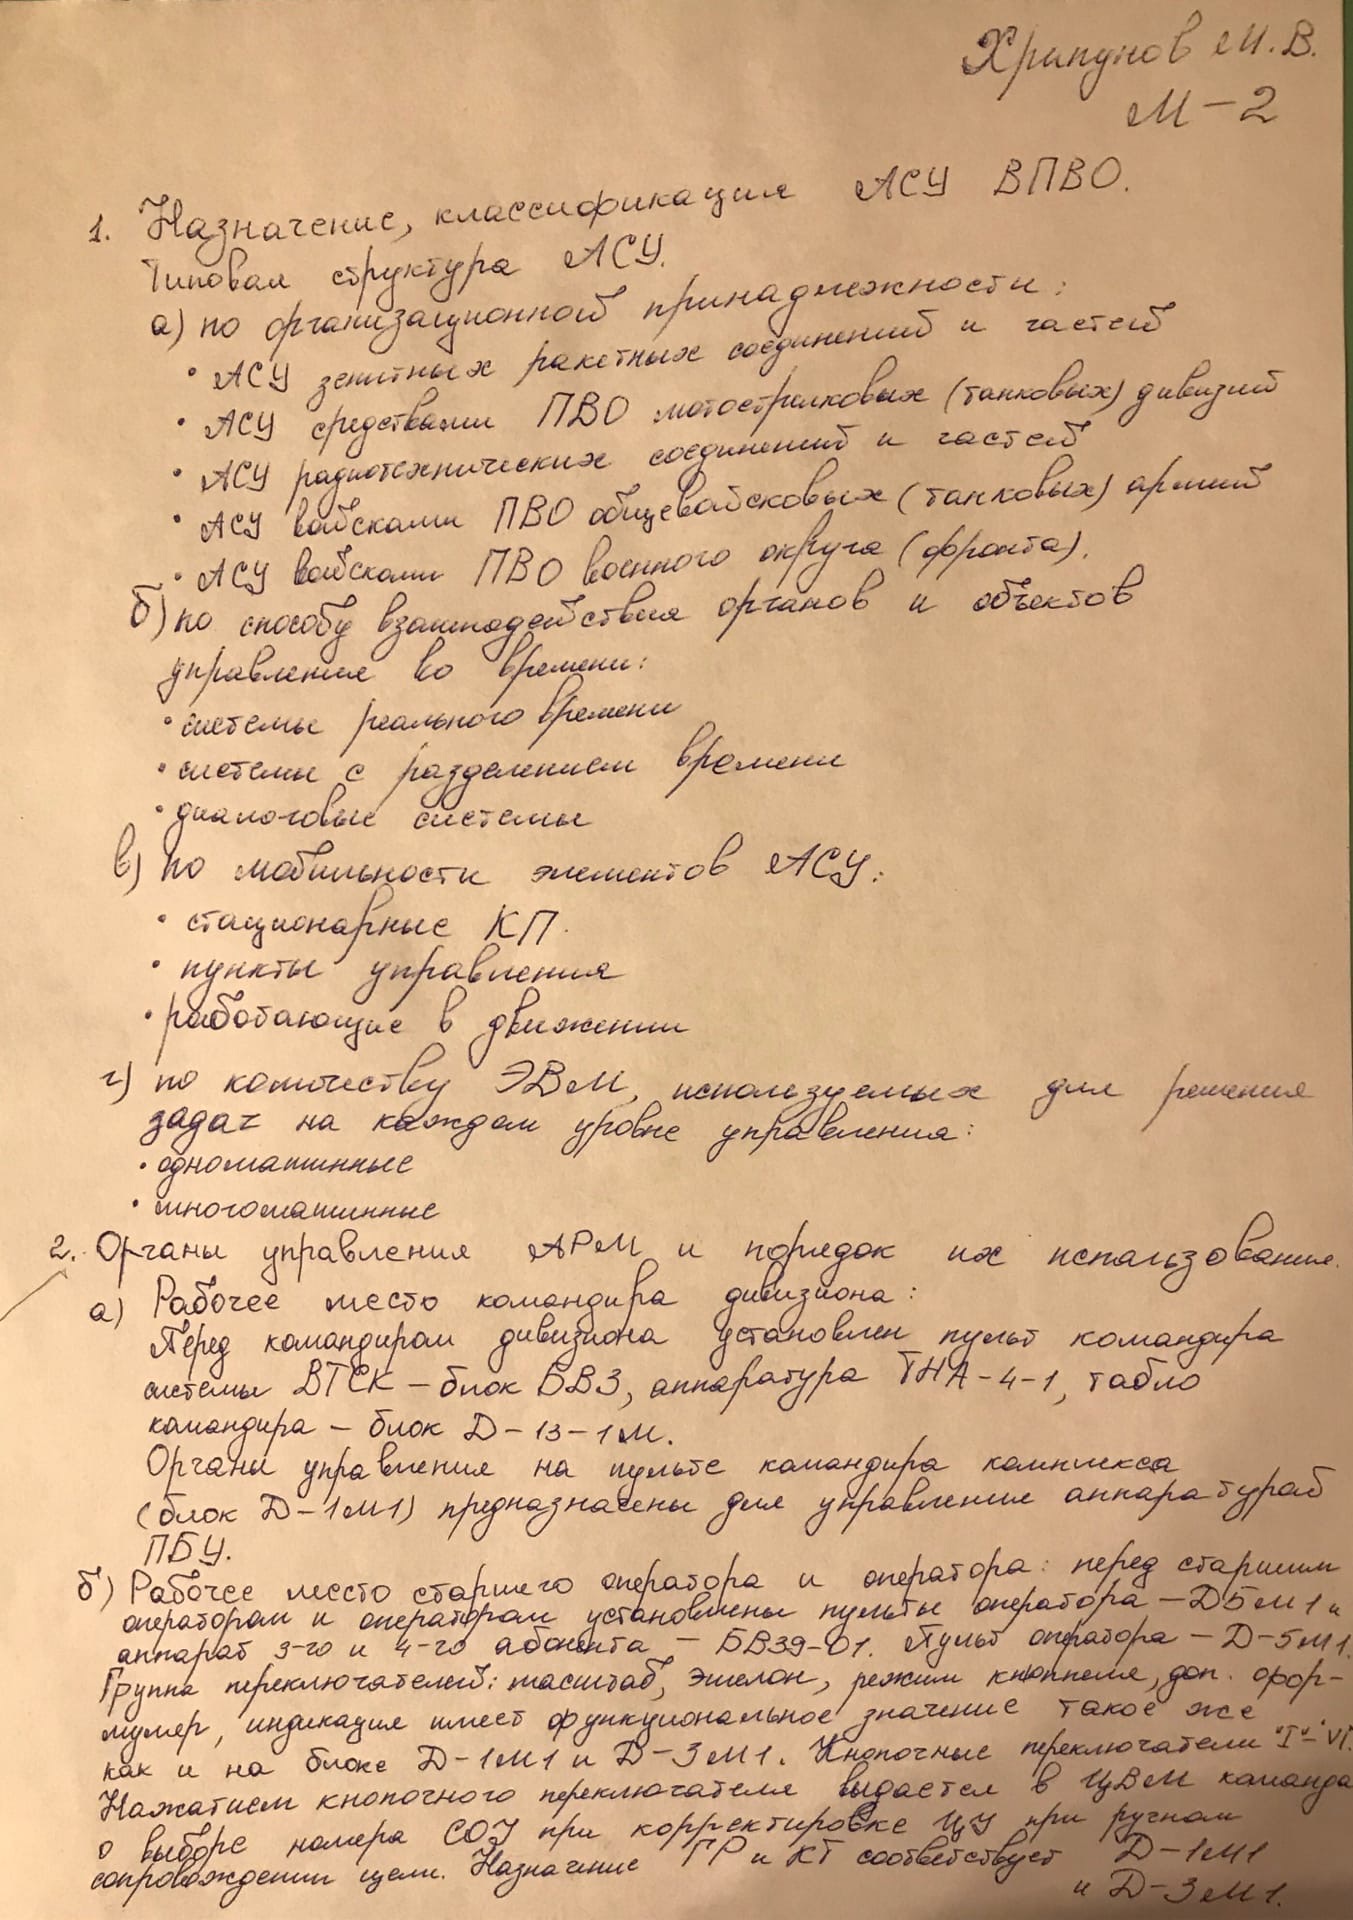 Хрипунов М.В.
М-2
1. Назначение, классификация АСУ ВПВО.
Типовая структура АСУ.
а) по организационной принадлежности:
• АСУ зенитных ракетных соединений и частей
• АСУ средствами ПВО мотострелковых (танковых) дивизий
• АСУ радиотехнических соединений и частей
• АСУ войсками ПВО общевойсковых (танковых) армий
• АСУ войсками ПВО военного округа (фронта).
б) по способу взаимодействия органов и объектов
управления во времени:
• системы реального времени
• системы с разделением времени
• диалоговые системы
в) по мобильности элементов АСУ:
• стационарные КП.
• пункты управления
• работающие в движении
г) по количеству ЭВМ, используемых для решения
задач на каждом уровне управления:
• одномашинные
• многомашинные
2. Органы управления АРМ и порядок их использования.
а) Рабочее место командира дивизиона:
Перед командиром дивизиона установлен пульт командира
системы ВТСК – блок БВЗ, аппаратура ТНА-4-1, табло
командира – блок Д-13-1М.
Органы управления на пульте командира комплекса
(блок Д-1М1) предназначены для управления аппаратурой
ПБУ.
б) Рабочее место старшего оператора и оператора: перед старшим
оператором и оператором установлены пульты оператора – Д5М1 и
аппарат 3-го и 4-го абонента – БВ39-01. Пульт оператора – Д-5М1.
Группа переключателей: масштаб, эшелон, режим кнюппеля, доп. фор-
муляр, индикация имеет функциональное значение такое же
как и на блоке Д-1М1 и Д-3М1. Кнопочные переключатели "I"-"VI.
Нажатием кнопочного переключателя выдается в ЦВМ команда
о выборе номера СОУ при корректировке ЦУ при ручном
сопровождении цели. Назначение ГР и КТ соответствует Д-1М1
и Д-3М1.